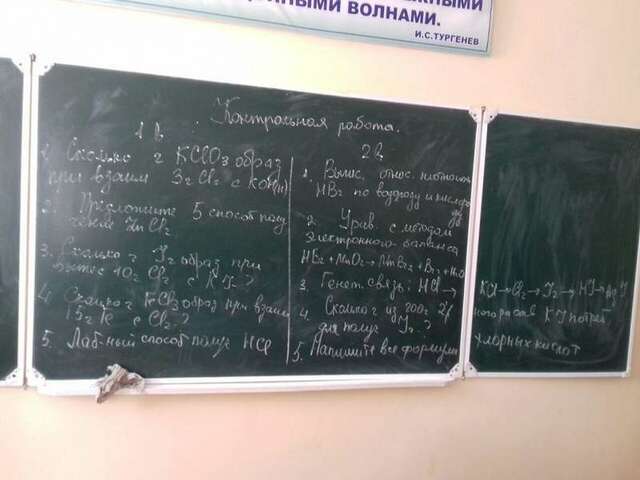 ЖНЫМИ
НЫМИ ВОЛНАМИ.
И.С.ТУРГЕНЕВ
Контрольная работа.
1 в.
1. Сколько г KClO3 образ
при взаим 3г Cl2 с KOH(п)
2. Предложите 5 способ полу
чение ZnCl2
3. Сколько г J2 образ при
10г Cl2 с KJ-?
4. Сколько г FeCl3 образ при взаим
15г Fe с Cl2-?
5. Лаб-ный способ получ HCl
2 в
1. Вычис. относ. плотность
HBr по водроду и кислоро
ду
2. Урав. с методом
электронного баланса
HBr+MnO2→MnBr2+Br2+H2O
3. Генет. связь: HCl→
KJ→Cl2→J2→HJ→AgJ
4. Сколько г из 200г 2%
KJ потреб
для получ J2-?
5. Напишите все формулы
хлорных кислот